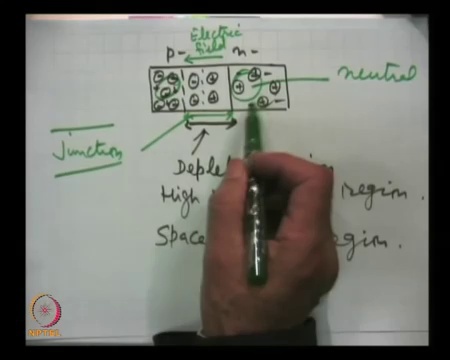 Electric
Field
p- n-
neutral
Junction
region
High region.
Space region.
NPTEL